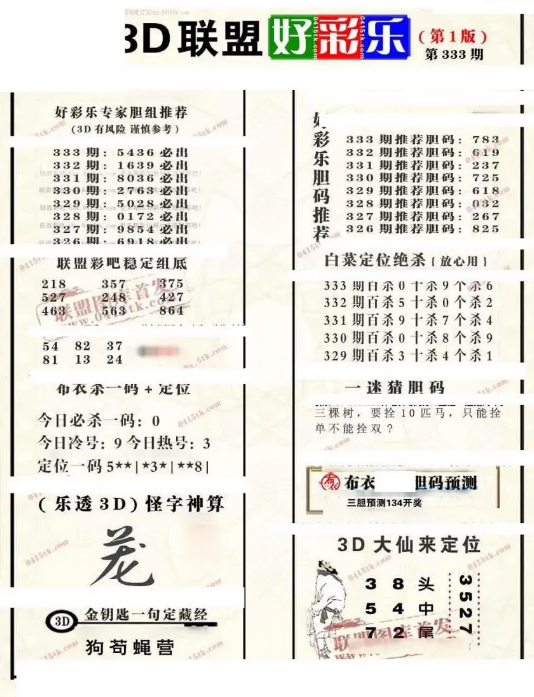 3D联盟好彩乐
(第1版)
第333期
好彩乐专家胆组推荐
(3D有风险 谨慎参考)
333期: 5436必出
332期: 1639必出
331期: 8036必出
330期: 2763必出
329期: 5028必出
328期: 0172必出
327期: 9854必出
326期: 6918必出
联盟彩吧稳定组底
218 357 375
527 248 427
463 563 864
54 82 37
81 13 24
布衣杀一码+定位
今日必杀一码: 0
今日冷号: 9 今日热号: 3
定位一码5**|*3*|**8|
(乐透3D)怪字神算
3D 金钥匙一句定藏经
狗苟蝇营
好彩乐胆码推荐
333期推荐胆码: 783
332期推荐胆码: 619
331期推荐胆码: 237
330期推荐胆码: 725
329期推荐胆码: 618
328期推荐胆码: 032
327期推荐胆码: 267
326期推荐胆码: 825
白菜定位绝杀{放心用}
333期百杀0十杀9个杀6
332期百杀5十杀0个杀2
331期百杀9十杀7个杀4
330期百杀0十杀8个杀9
329期百杀3十杀4个杀1
一迷猜胆码
三棵树，要拴10匹马，只能拴
单不能拴双？
布衣 胆码预测
三胆预测134开奖
3D大仙来定位
3 8 头
5 4 中
7 2 尾
3527
联盟图库首发
0415tk.com